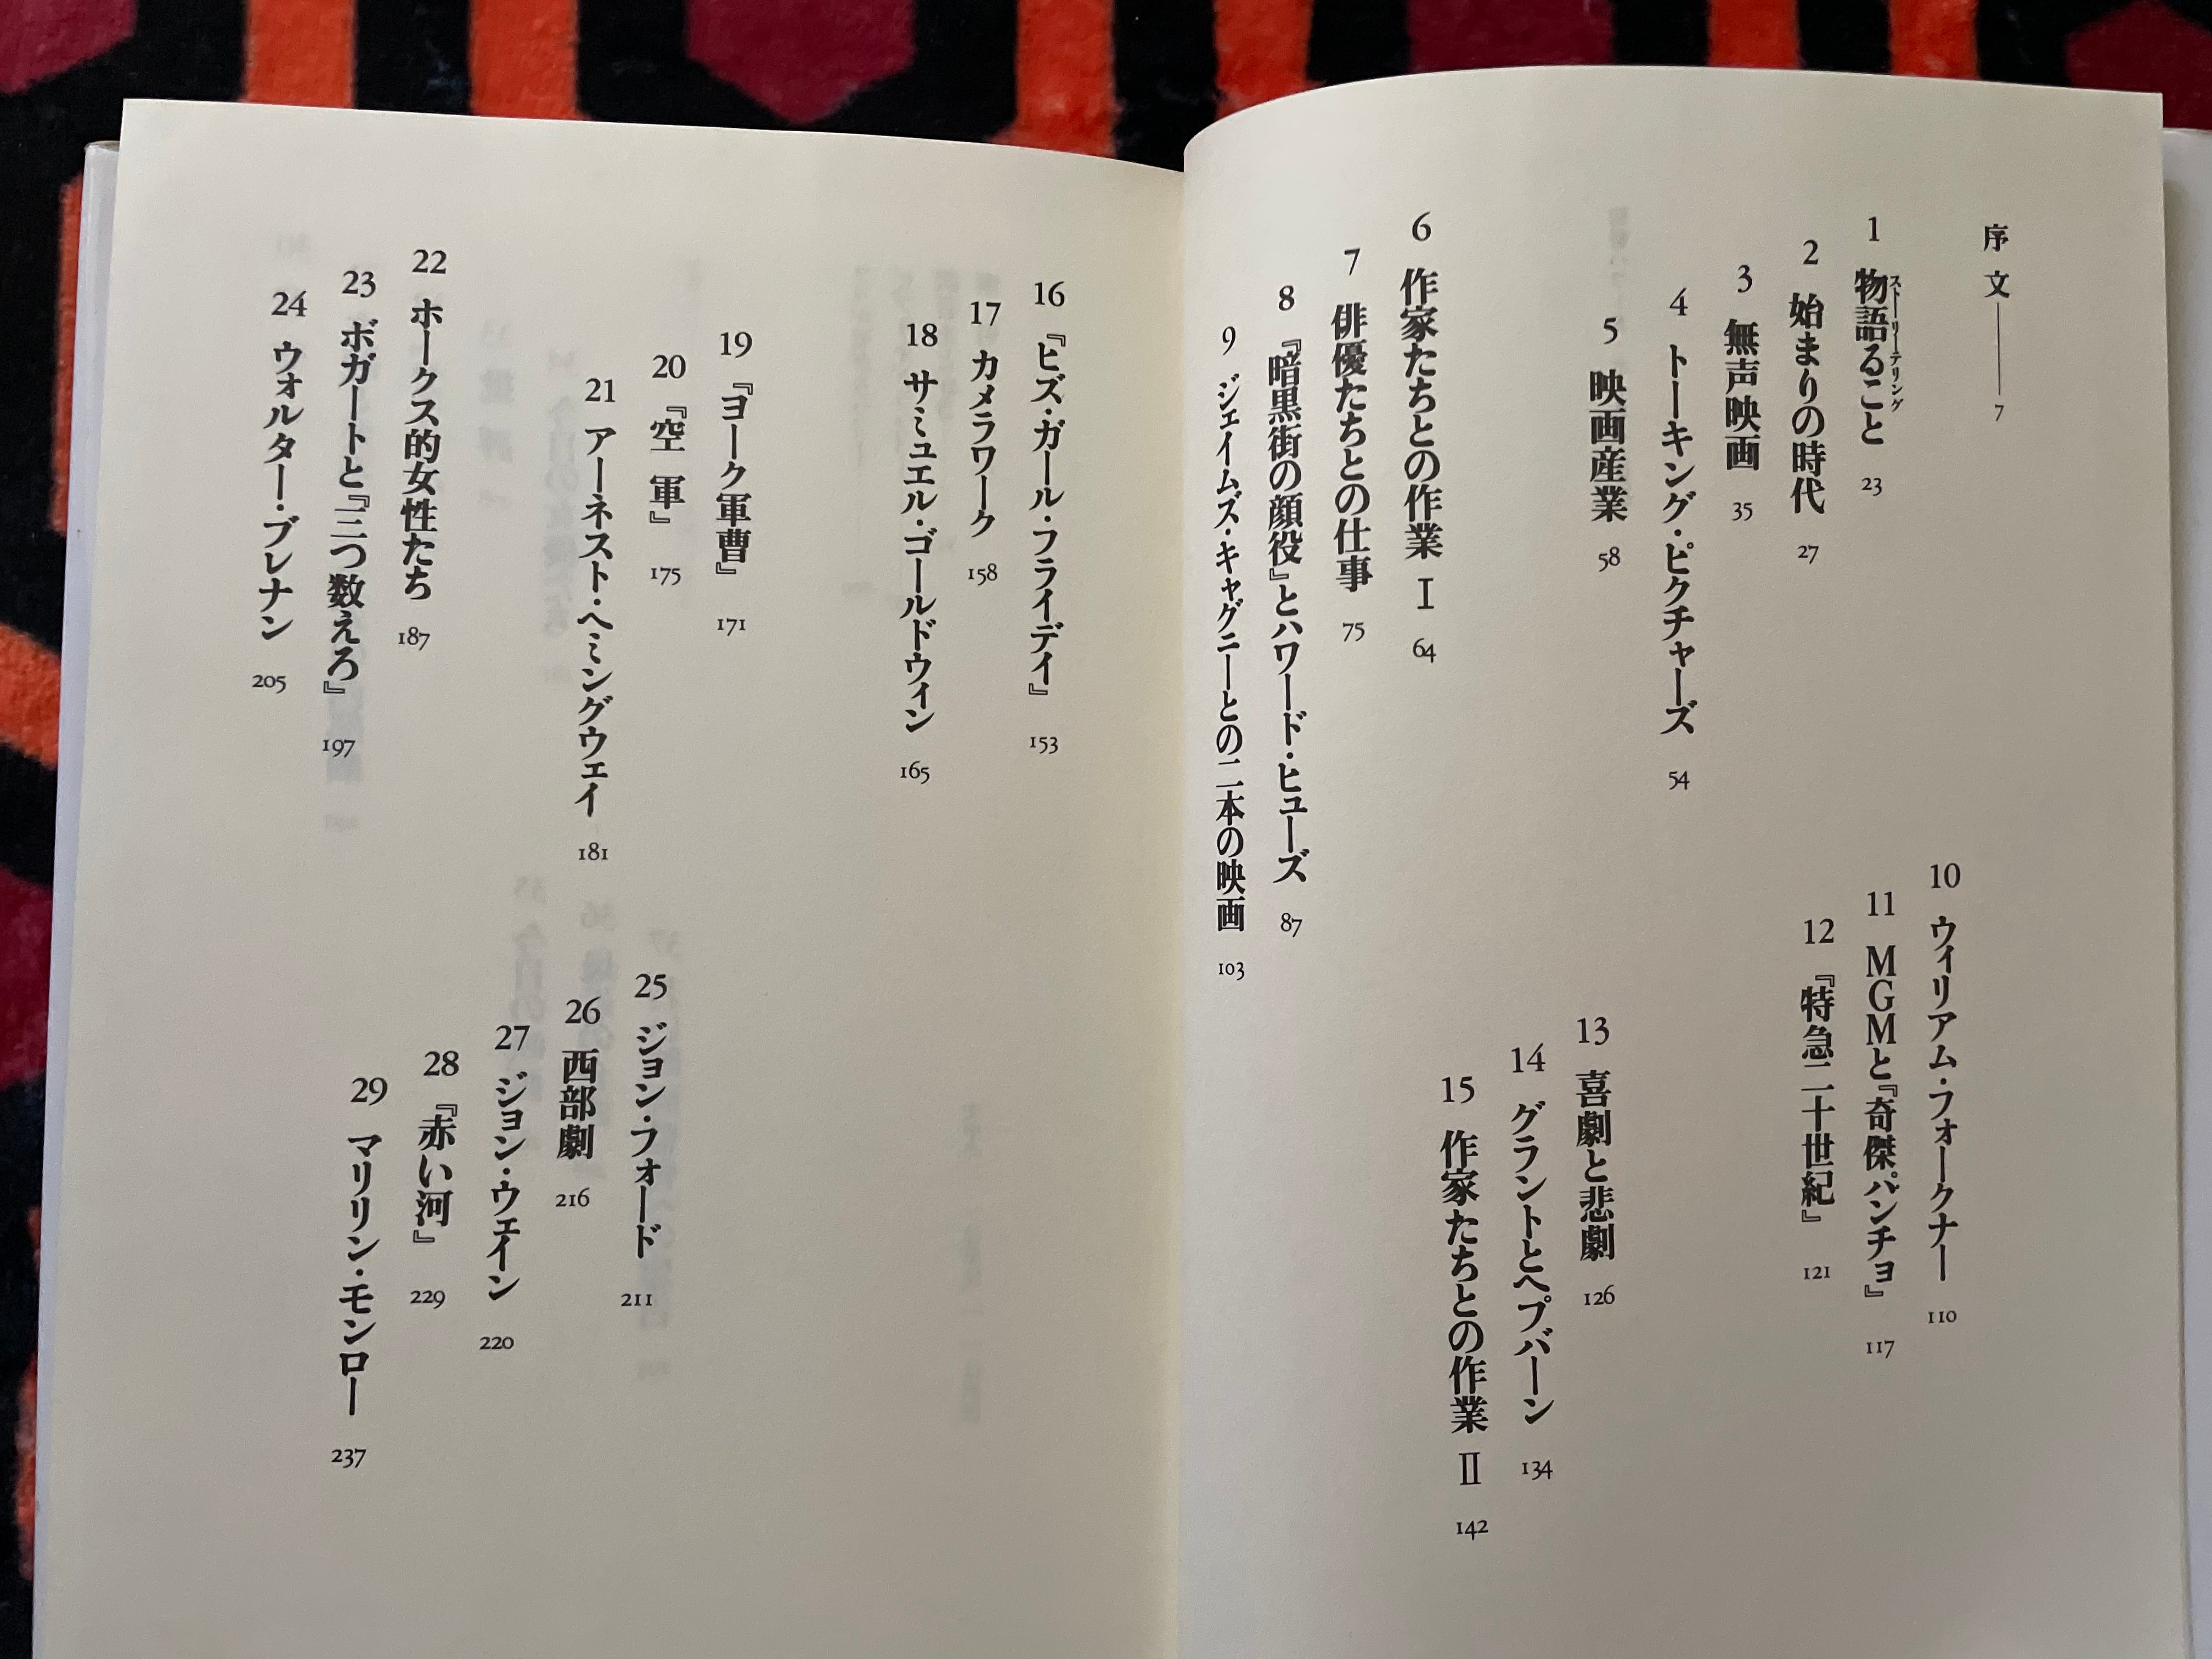 序文――7
1 物語ること 23
ストーリーテリング
2 始まりの時代 27
3 無声映画 35
4 トーキング・ピクチャーズ 54
5 映画産業 58
6 作家たちとの作業 Ⅰ 64
7 俳優たちとの仕事 75
8 『暗黒街の顔役』とハワード・ヒューズ 87
9 ジェイムズ・キャグニーとの二本の映画 103
10 ウィリアム・フォークナー 110
11 MGMと『奇傑パンチョ』 117
12 『特急二十世紀』 121
13 喜劇と悲劇 126
14 グラントとヘプバーン 134
15 作家たちとの作業 Ⅱ 142
16 『ヒズ・ガール・フライデイ』 153
17 カメラワーク 158
18 サミュエル・ゴールドウィン 165
19 『ヨーク軍曹』 171
20 『空軍』 175
21 アーネスト・ヘミングウェイ 181
22 ホークス的女性たち 187
23 ボガートと『三つ数えろ』 197
24 ウォルター・ブレナン 205
25 ジョン・フォード 211
26 西部劇 216
27 ジョン・ウェイン 220
28 『赤い河』 229
29 マリリン・モンロー 237